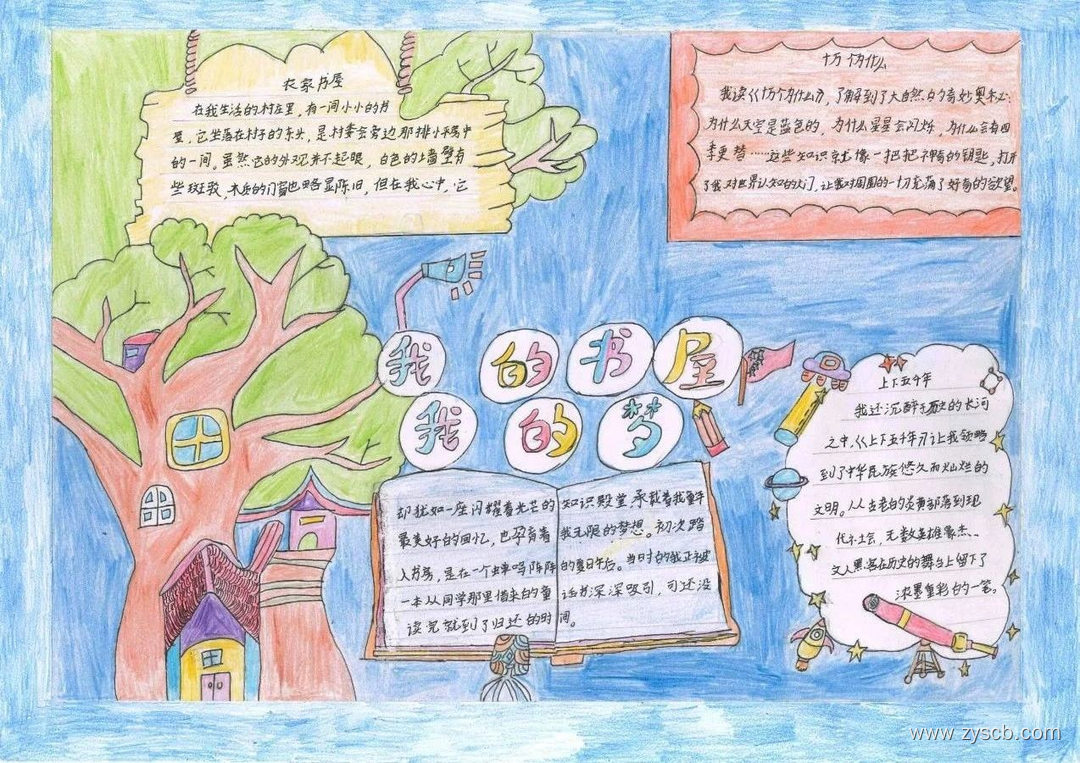 农家书屋
在我生活的村庄里，有一间小小的书
屋，它坐落在村子的东头，是村委会旁边那排小平房中
的一间。虽然它的外观并不起眼，白色的墙壁有
些斑驳，木质的门窗也略显陈旧，但在我心中，它
十万个为什么
我读《十万个为什么》，了解到了大自然的奇妙奥秘：
为什么天空是蓝色的，为什么星星会闪烁，为什么会有四
季更替……这些知识就像一把把神奇的钥匙，打开
了我对世界认知的大门，让我对周围的一切充满了好奇的欲望。
我的书屋
我的梦
却犹如一座闪耀着光芒的知识殿堂，承载着我童年
最美好的回忆，也孕育着我无限的梦想。初次踏
入书房，是在一个蝉鸣阵阵的夏日午后。当时的我正被
一本从同学那里借来的童话书深深吸引，可还没
读完就到了归还的时间。
上下五千年
我还沉醉于历史的长河
之中，《上下五千年》让我领略
到了中华民族悠久而灿烂的
文明。从古老的炎黄部落到现
代社会，无数英雄豪杰、
文人墨客在历史的舞台上留下了
浓墨重彩的一笔。
www.zyscb.com